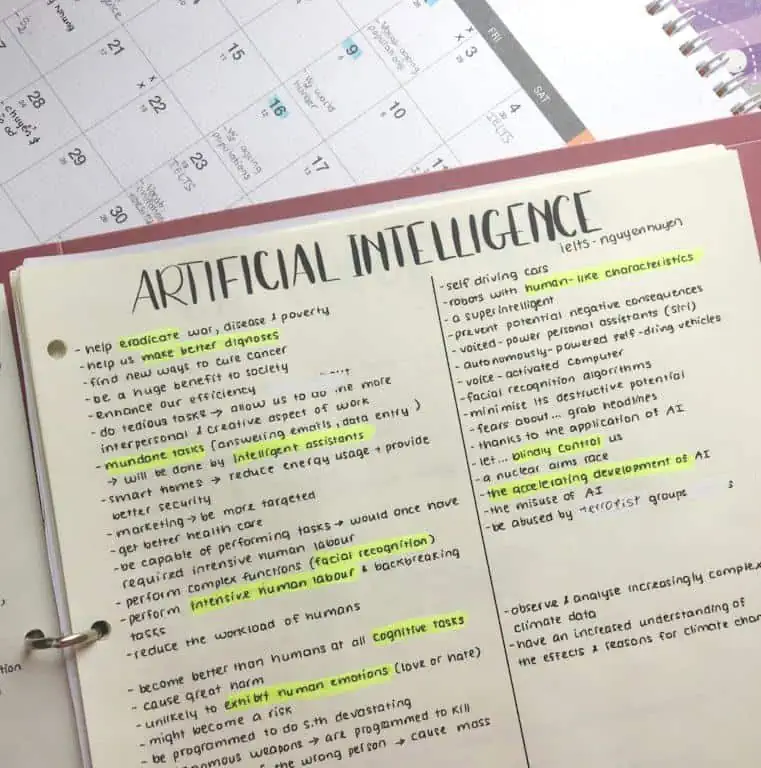 Nhung
FRI
SAT
21
15
9
x 3
Vs. ageing
populations
x
22
16
10
4
IELTS
Vs. world
hunger
28
chuyển $
29
23
IELTS
17
Vs. ageing
populations
11
30
Vocab
ARTIFICIAL INTELLIGENCE
ielts - nguyenhuyen
- help eradicate war, disease & poverty
- help us make better dignoses
- find new ways to cure cancer
- be a huge benefit to society
- enhance our efficiency
- do tedious tasks → allow us to do the more
interpersonal & creative aspect of work
- mundane tasks (answering emails, data entry)
→ will be done by intelligent assistants
- smart homes → reduce energy usage + provide
better security
- marketing → be more targeted
- get better health care
- be capable of performing tasks → would once have
required intensive human labour
- perform complex functions (facial recognition)
- perform intensive human labour & backbreaking
tasks
- reduce the workload of humans
- become better than humans at all cognitive tasks
- cause great harm
- unlikely to exhibit human emotions (love or hate)
- might become a risk
- be programmed to do s.th devastating
nomous weapons → are programmed to kill
the wrong person → cause mass
- self driving cars
- robots with human-like characteristics
- a superintelligent
- prevent potential negative consequences
- voiced-power personal assistants (siri)
- autonomously-powered self-driving vehicles
- voice-activated computer
- facial recognition algorithms
- minimise its destructive potential
- fears about... grab headlines
- thanks to the application of AI
- let... blindly control us
- a nuclear aims race
- the accelerating development of AI
- the misuse of AI
- be abused by terrorist groups
- observe & analyse increasingly complex
climate data
- have an increased understanding of
the effects & reasons for climate chan